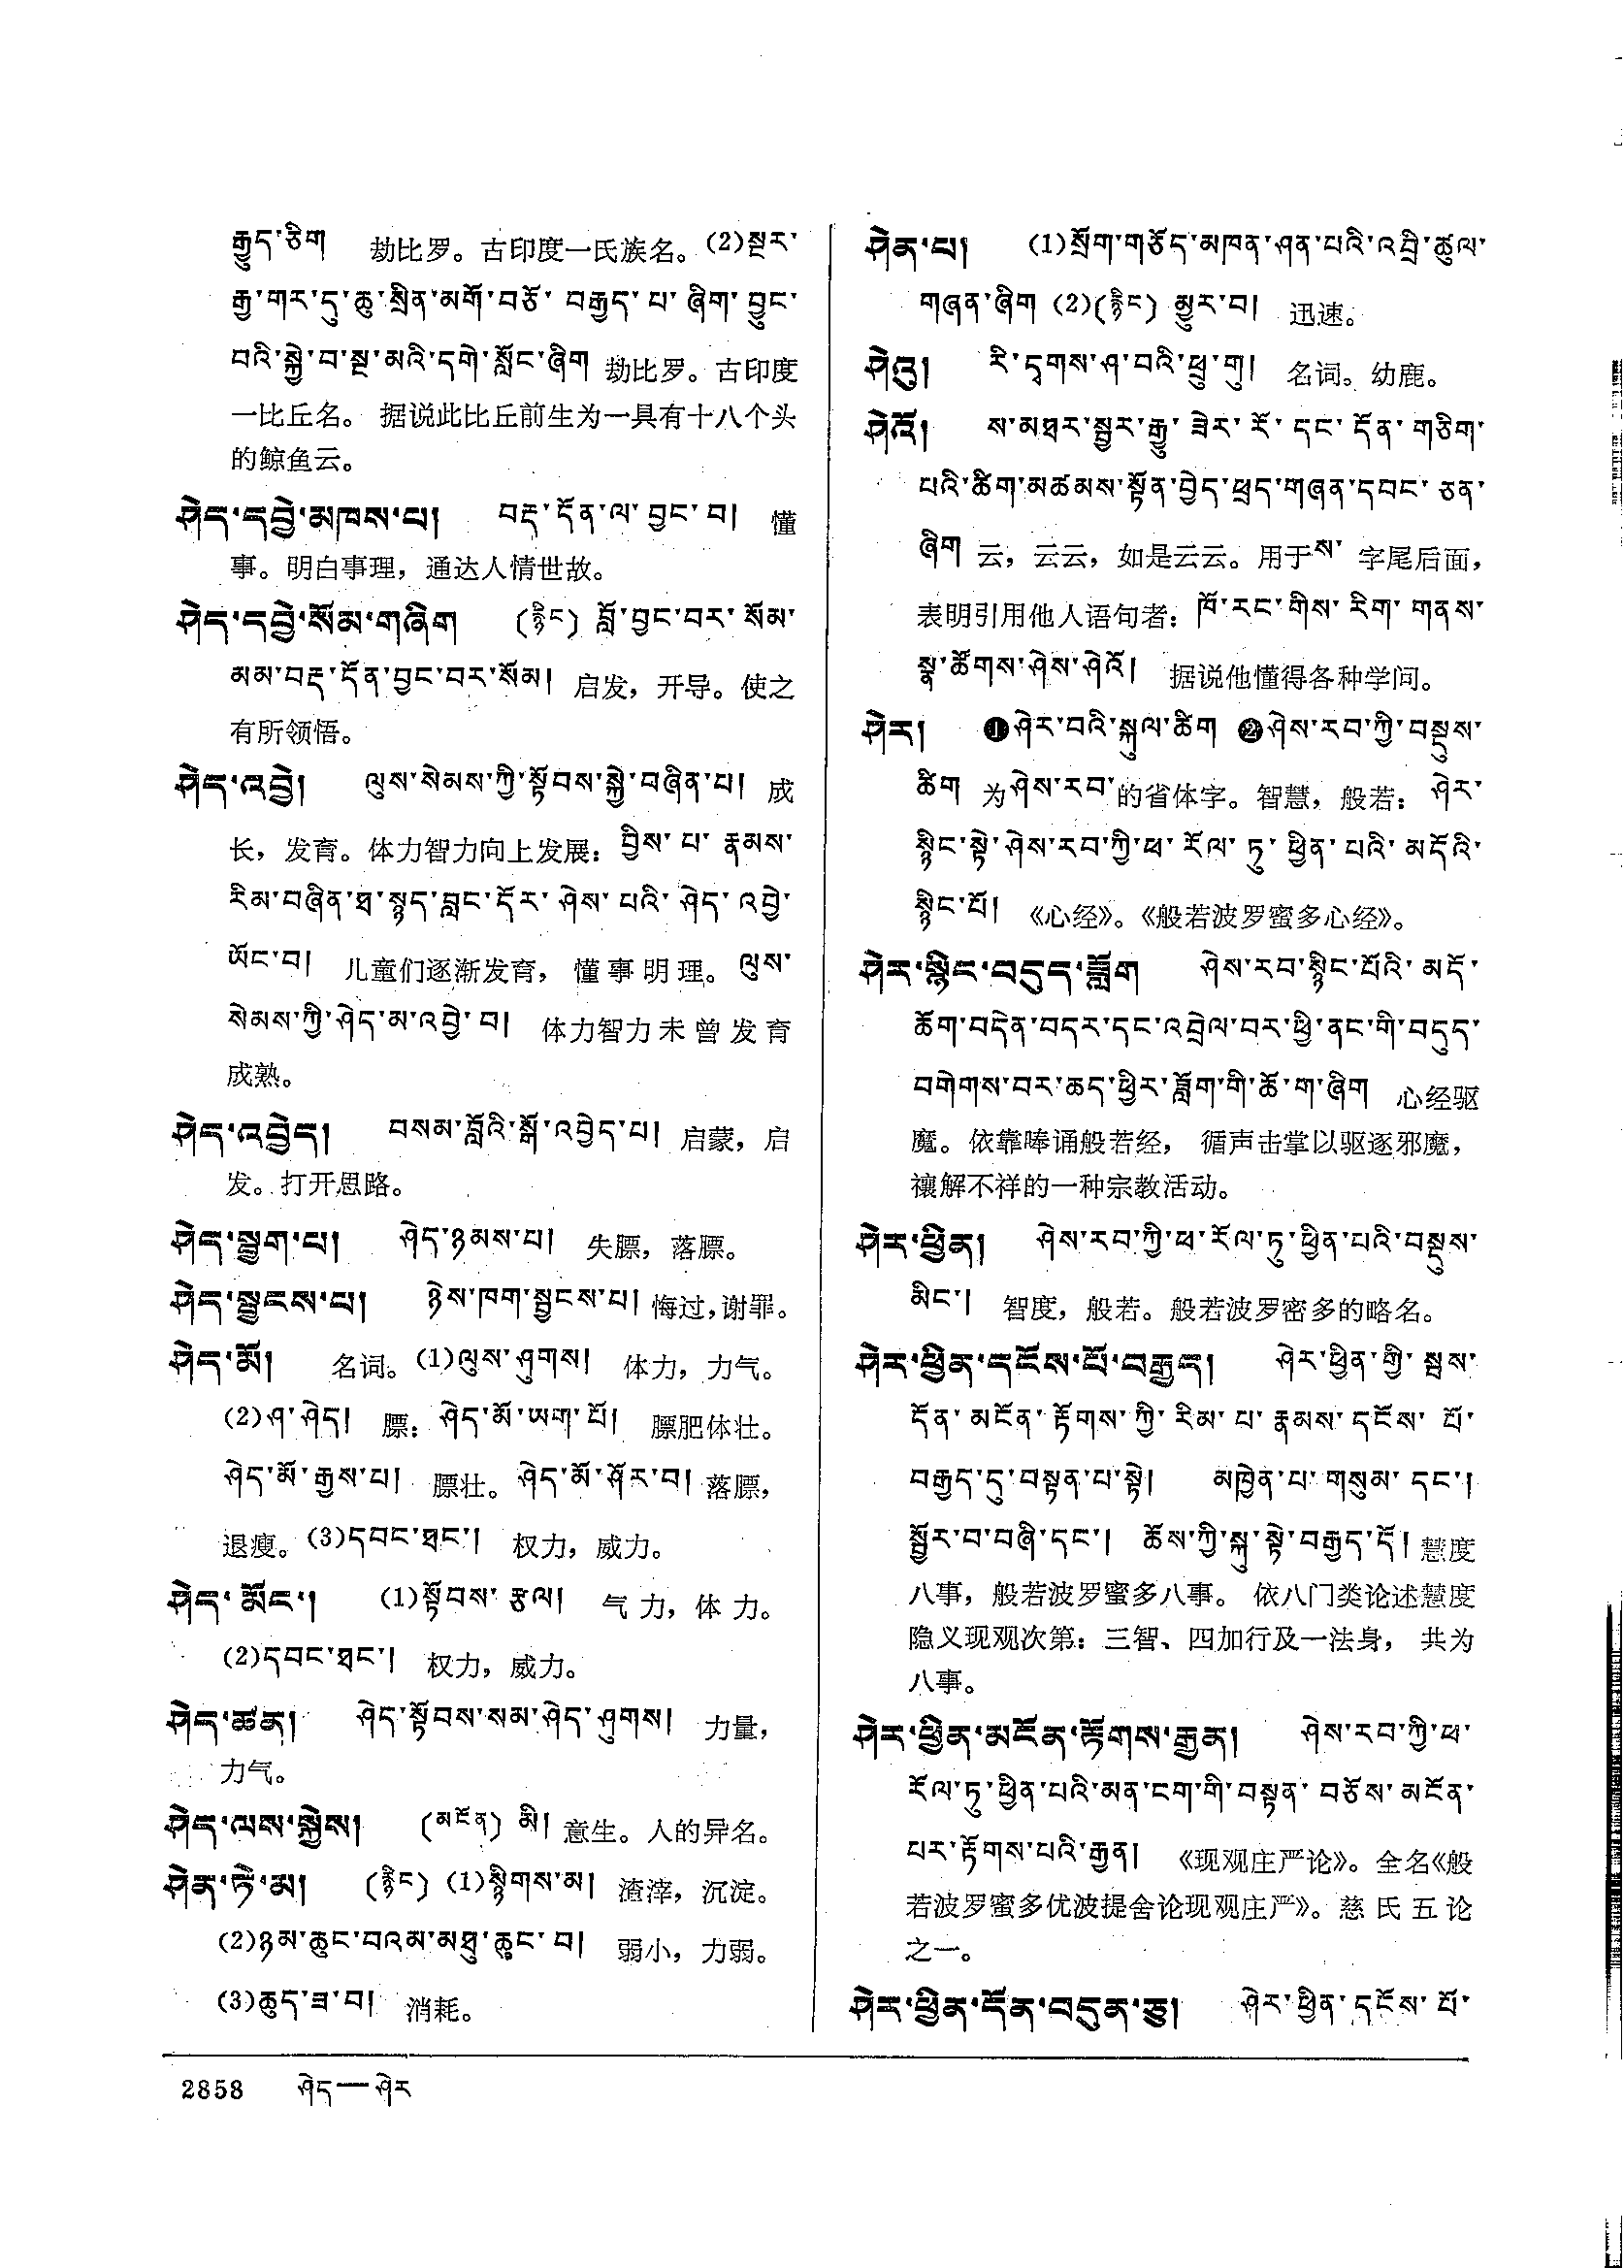 རྒྱུད་ཅིག 劫比罗。古印度一氏族名。(2)སྔར་
རྒྱ་གར་དུ་ཆུ་སྲིན་མགོ་བཅོ་བརྒྱད་པ་ཞིག་བྱུང་
བའི་སྐྱེ་བ་སྔ་མའི་དགེ་སློང་ཞིག 劫比罗。古印度
一比丘名。据说此比丘前生为一具有十八个头
的鲸鱼云。
ཤེད་དབྱེ་མཁས་པ། བརྡ་དོན་ལ་བྱང་བ། 懂
事。明白事理，通达人情世故。
ཤེད་དབྱེ་སོམ་གཞིག (རྙིང) བློ་བྱང་བར་སོམ་
མམ་བརྡ་དོན་བྱང་བར་སོམ། 启发，开导。使之
有所领悟。
ཤེད་འབྱེ། ལུས་སེམས་ཀྱི་སྟོབས་སྐྱེ་བཞིན་པ། 成
长，发育。体力智力向上发展：བྱིས་པ་རྣམས་
རིམ་བཞིན་ཐ་སྙད་བླང་དོར་ཤེས་པའི་ཤེད་འབྱེ་
ཡོང་བ། 儿童们逐渐发育，懂事明理。ལུས་
སེམས་ཀྱི་ཤེད་མ་འབྱེ་བ། 体力智力未曾发育
成熟。
ཤེད་འབྱེད། བསམ་བློའི་སྒོ་འབྱེད་པ། 启蒙，启
发。打开思路。
ཤེད་སྦྱག་པ། ཤེད་ཉམས་པ། 失膘，落膘。
ཤེད་སྦྱངས་པ། ཉེས་ཁག་སྦྱངས་པ། 悔过，谢罪。
ཤེད་མོ། 名词。(1)ལུས་ཤུགས། 体力，力气。
(2)ཤ་ཤེད། 膘：ཤེད་མོ་ཡག་པོ། 膘肥体壮。
ཤེད་མོ་རྒྱས་པ། 膘壮。ཤེད་མོ་ཤོར་བ། 落膘，
退瘦。(3)དབང་ཐང་། 权力，威力。
ཤེད་མོང་། (1)སྟོབས་རྩལ། 气力，体力。
(2)དབང་ཐང་། 权力，威力。
ཤེད་ཚན། ཤེད་སྟོབས་སམ་ཤེད་ཤུགས། 力量，
力气。
ཤེད་ལས་སྐྱེས། (མངོན) མི། 意生。人的异名。
ཤེན་ཏེ་མ། (རྙིང) (1)སྙིགས་མ། 渣滓，沉淀。
(2)ཉམ་ཆུང་བའམ་མཐུ་ཆུང་བ། 弱小，力弱。
(3)ཆུད་ཟ་བ། 消耗。
ཤེན་པ། (1)སྲོག་གཅོད་མཁན་ཤན་པའི་འབྲི་ཚུལ་
གཞན་ཞིག (2)(རྙིང) མྱུར་བ། 迅速。
ཤེའུ། རི་དྭགས་ཤ་བའི་ཕྲུ་གུ། 名词。幼鹿。
ཤེའོ། ས་མཐར་སྦྱར་རྒྱུ་ཟེར་རོ་དང་དོན་གཅིག་
པའི་ཚིག་མཚམས་སྟོན་བྱེད་ཕྲད་གཞན་དབང་ཅན་
ཞིག 云，云云，如是云云。用于ས་字尾后面，
表明引用他人语句者：ཁོ་རང་གིས་རིག་གནས་
སྣ་ཚོགས་ཤེས་ཤེའོ། 据说他懂得各种学问。
ཤེར། ❶ཤེར་བའི་སྐུལ་ཚིག ❷ཤེས་རབ་ཀྱི་བསྡུས་
ཚིག 为ཤེས་རབ་的省体字。智慧，般若：ཤེར་
སྙིང་སྟེ་ཤེས་རབ་ཀྱི་ཕ་རོལ་ཏུ་ཕྱིན་པའི་མདོའི་
སྙིང་པོ། 《心经》。《般若波罗蜜多心经》。
ཤེར་སྙིང་བདུད་ཟློག ཤེས་རབ་སྙིང་པོའི་མདོ་
ཚོག་བདེན་བདར་དང་འབྲེལ་བར་ཕྱི་ནང་གི་བདུད་
བགེགས་བར་ཆད་ཕྱིར་ཟློག་གི་ཆོ་ག་ཞིག 心经驱
魔。依靠唪诵般若经，循声击掌以驱逐邪魔，
禳解不祥的一种宗教活动。
ཤེར་ཕྱིན། ཤེས་རབ་ཀྱི་ཕ་རོལ་ཏུ་ཕྱིན་པའི་བསྡུས་
མིང་། 智度，般若。般若波罗密多的略名。
ཤེར་ཕྱིན་དངོས་པོ་བརྒྱད། ཤེར་ཕྱིན་གྱི་སྦས་
དོན་མངོན་རྟོགས་ཀྱི་རིམ་པ་རྣམས་དངོས་པོ་
བརྒྱད་དུ་བསྟན་པ་སྟེ། མཁྱེན་པ་གསུམ་དང་།
སྦྱོར་བ་བཞི་དང་། ཆོས་ཀྱི་སྐུ་སྟེ་བརྒྱད་དོ། 慧度
八事，般若波罗蜜多八事。依八门类论述慧度
隐义现观次第：三智、四加行及一法身，共为
八事。
ཤེར་ཕྱིན་མངོན་རྟོགས་རྒྱན། ཤེས་རབ་ཀྱི་ཕ་
རོལ་ཏུ་ཕྱིན་པའི་མན་ངག་གི་བསྟན་བཅོས་མངོན་
པར་རྟོགས་པའི་རྒྱན། 《现观庄严论》。全名《般
若波罗蜜多优波提舍论现观庄严》。慈氏五论
之一。
ཤེར་ཕྱིན་དོན་བདུན་ཅུ། ཤེར་ཕྱིན་དངོས་པོ་
2858 ཤེད—ཤེར